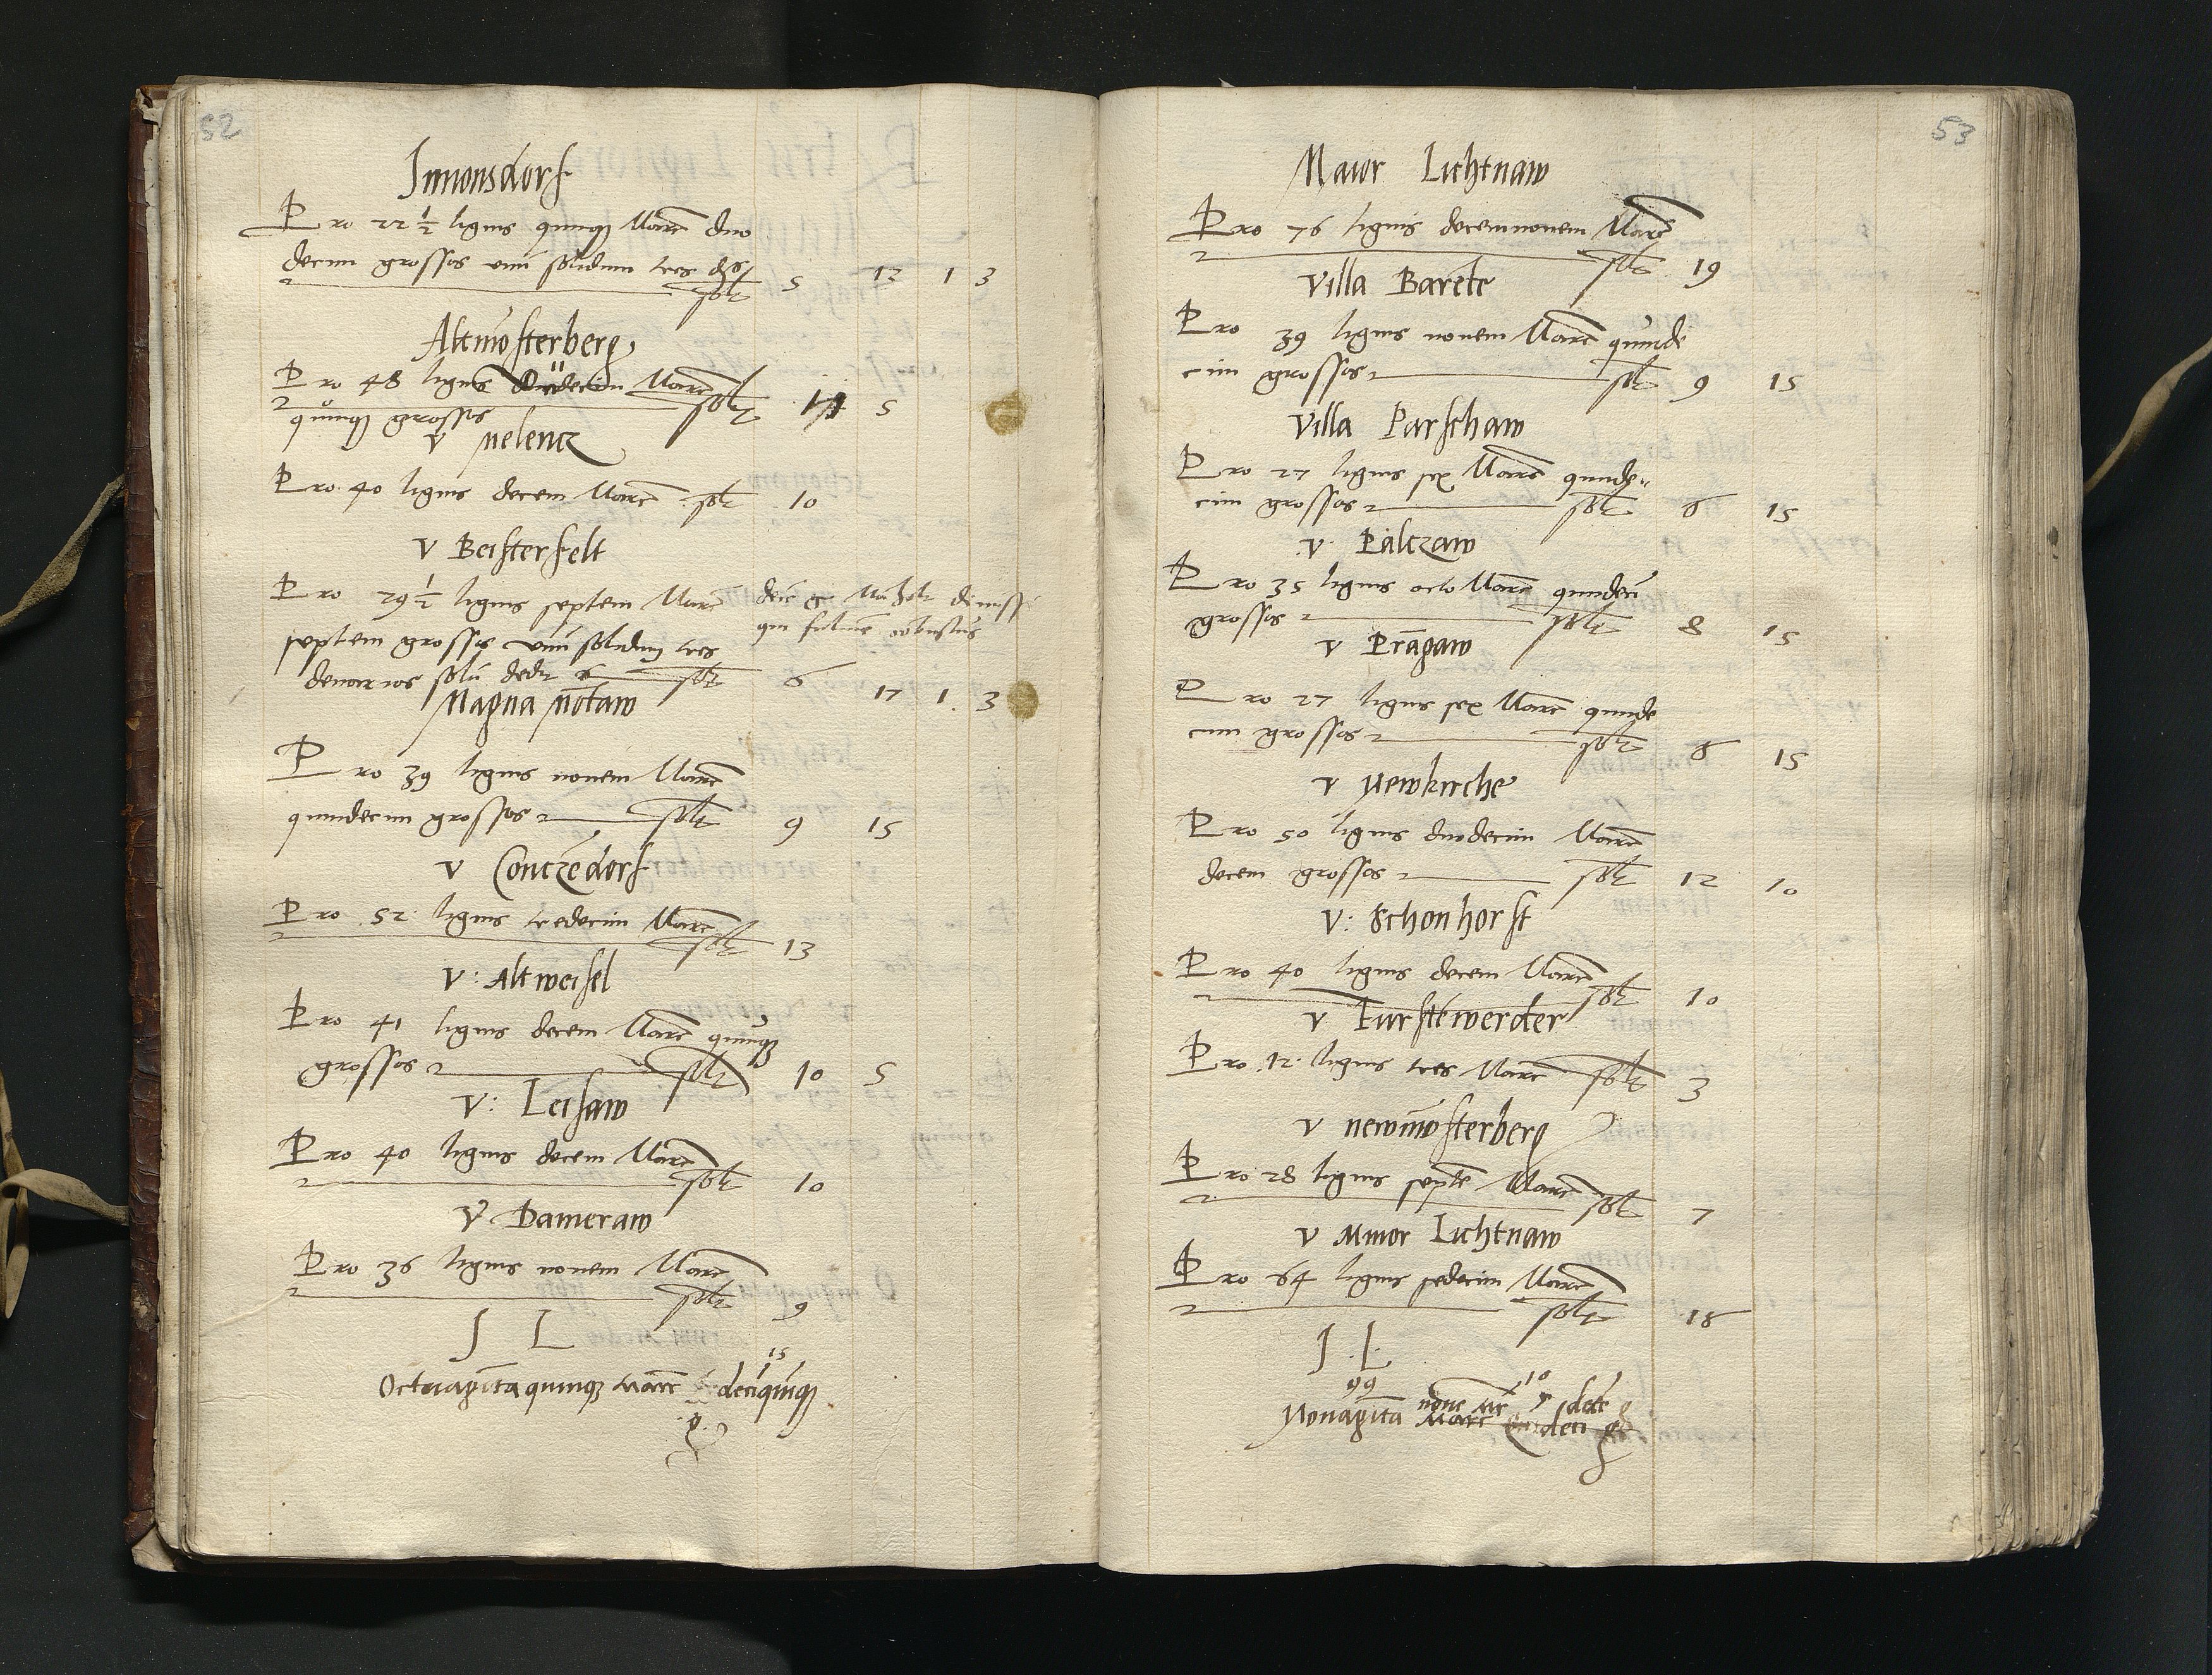 52
Simonsdorf
Pro 22 1/2 lignis quinq; Marc̄ duo
decim grossos unū solidum tres d
solt 5 12 1 3
Altmüsterberg
11
Pro 48 lignis Marc̄
solt 11 5
quinq; grossos
V Melencz
Pro 40 lignis decem Marc̄ solt 10
V Beisterfelt
Pro 29 1/2 lignis septem Marc̄
septem grossos unū solidum tres
denarios solū dedit 6 solt 6 17 1 3
Magna Mōtaw
Pro 39 lignis nonem Marc̄
quindecim grossos solt 9 15
V Conczēdorf
Pro 52 lignis tredecim Marc̄
solt 13
V: Altweisel
Pro 41 lignis decem Marc̄ quinq;
grossos solt 10 5
V: Leisaw
Pro 40 lignis decem Marc̄
solt 10
V Dameraw
Pro 36 lignis nonem Marc̄
solt 9
S L
15
Octuagīta quinq; marc̄ decīquīq;
g
53
Maior Lichtnaw
Pro 76 lignis decemnonem Marc̄
solt 19
Villa Barēte
Pro 39 lignis nonem Marc̄ quinde
cim grossos solt 9 15
Villa Parschaw
Pro 27 lignis sex Marc̄ quinde
cim grossos solt 6 15
V Palczaw
Pro 35 lignis octo Marc̄ quindecī
grossos solt 8 15
V Prāgaw
Pro 27 lignis sex Marc̄ quinde
cim grossos solt 6 15
V Newkirche
Pro 50 lignis duodecim Marc̄
decem grossos solt 12 10
V: Schonhorst
Pro 40 lignis decem Marc̄
solt 10
V Furstēwerder
Pro 12 lignis tres Marc̄ solt 3
V newmüsterberg
Pro 28 lignis septē Marc̄
solt 7
V Minor Lichtnaw
Pro 64 lignis sedecim Marc̄
solt 16
S. L.
99 10
none decē g
Nonagīta Marc̄ decī g